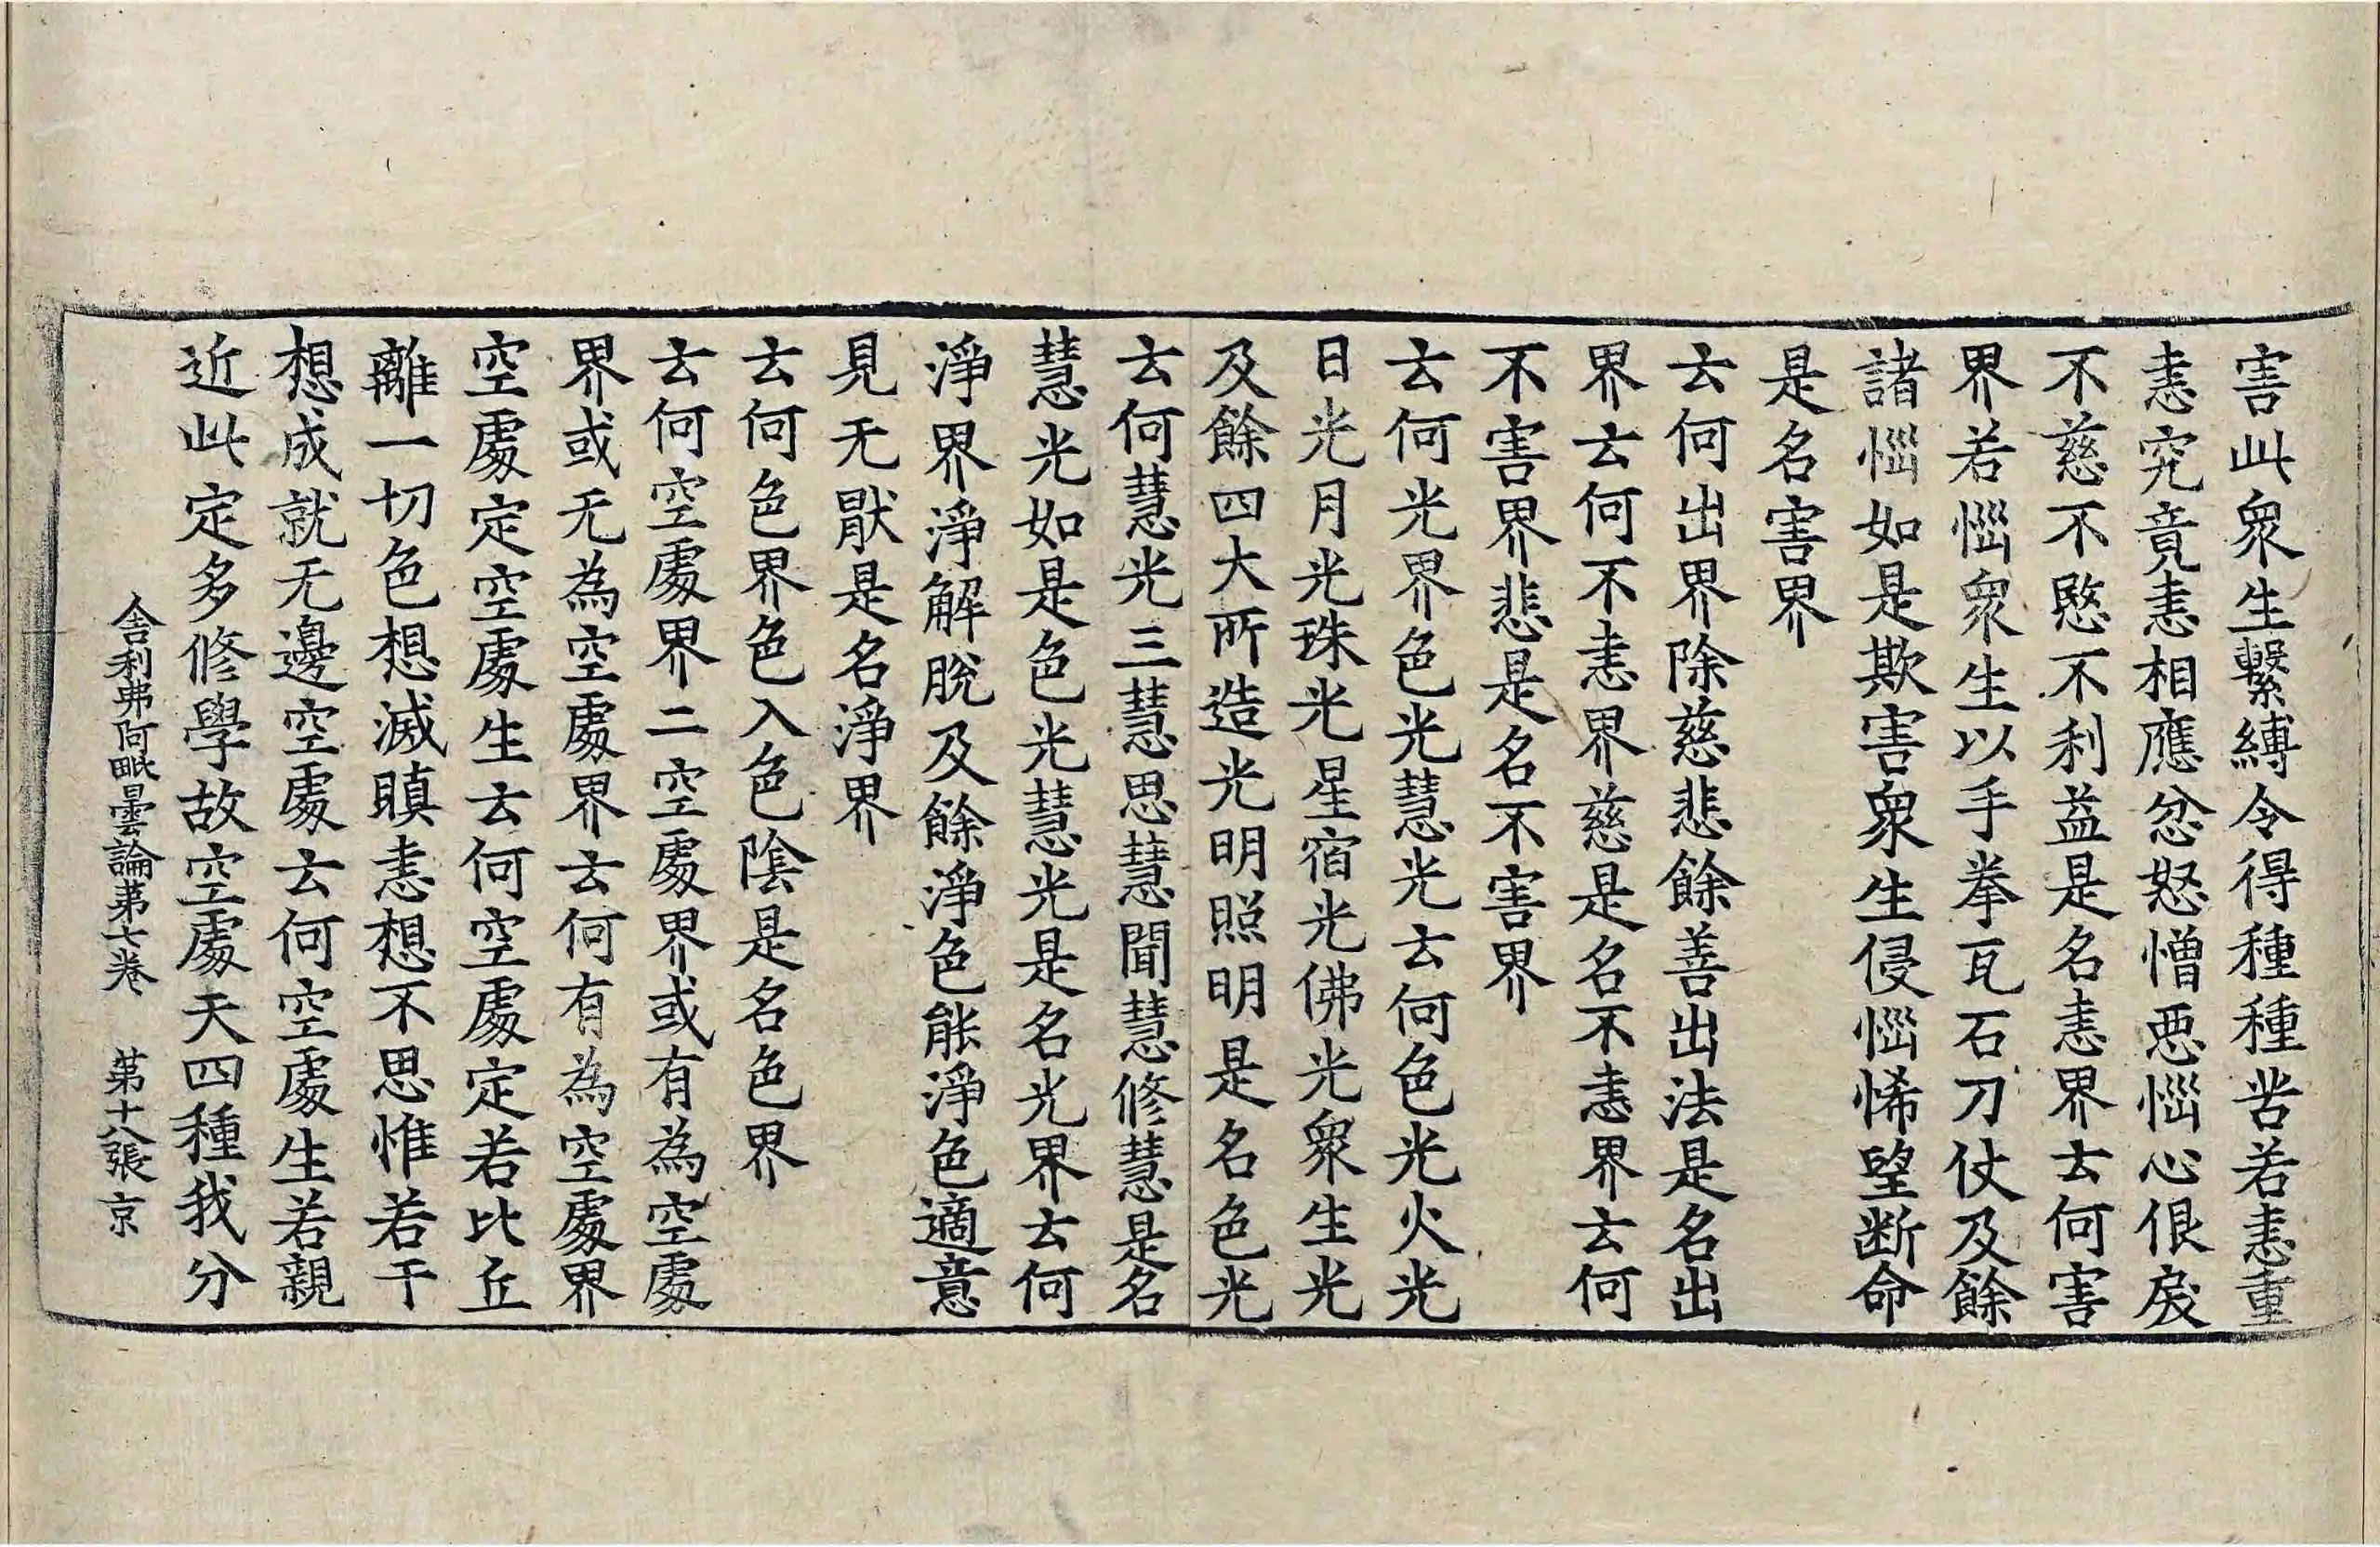 害此衆生繫縛令得種種苦若恚重
恚究竟恚相應忿怒憎惡惱心佷戾
不慈不愍不利益是名恚界云何害
界若惱衆生以手拳瓦石刀仗及餘
諸惱如是欺害衆生侵惱悕望断命
是名害界
云何出界除慈悲餘善出法是名出
界云何不恚界慈是名不恚界云何
不害界悲是名不害界
云何光界色光光慧光云何色光火光
日光月光珠光星宿光佛光衆生光
及餘四大所造光明照明是名色光
云何慧光三慧思慧聞慧修慧是名
慧光如是色光慧光是名光界云何
淨界淨解脫及餘淨色能淨色適意
見无猒是名淨界
云何色界色入色陰是名色界
云何空處界二空處界或有為空處
界或无為空處界云何有為空處界
空處定空處生云何空處定若比丘
離一切色想滅瞋恚想不思惟若干
想成就无邊空處云何空處生若親
近此定多修學故空處天四種我分
舍利弗阿毗曇論苐七卷　苐十八張京